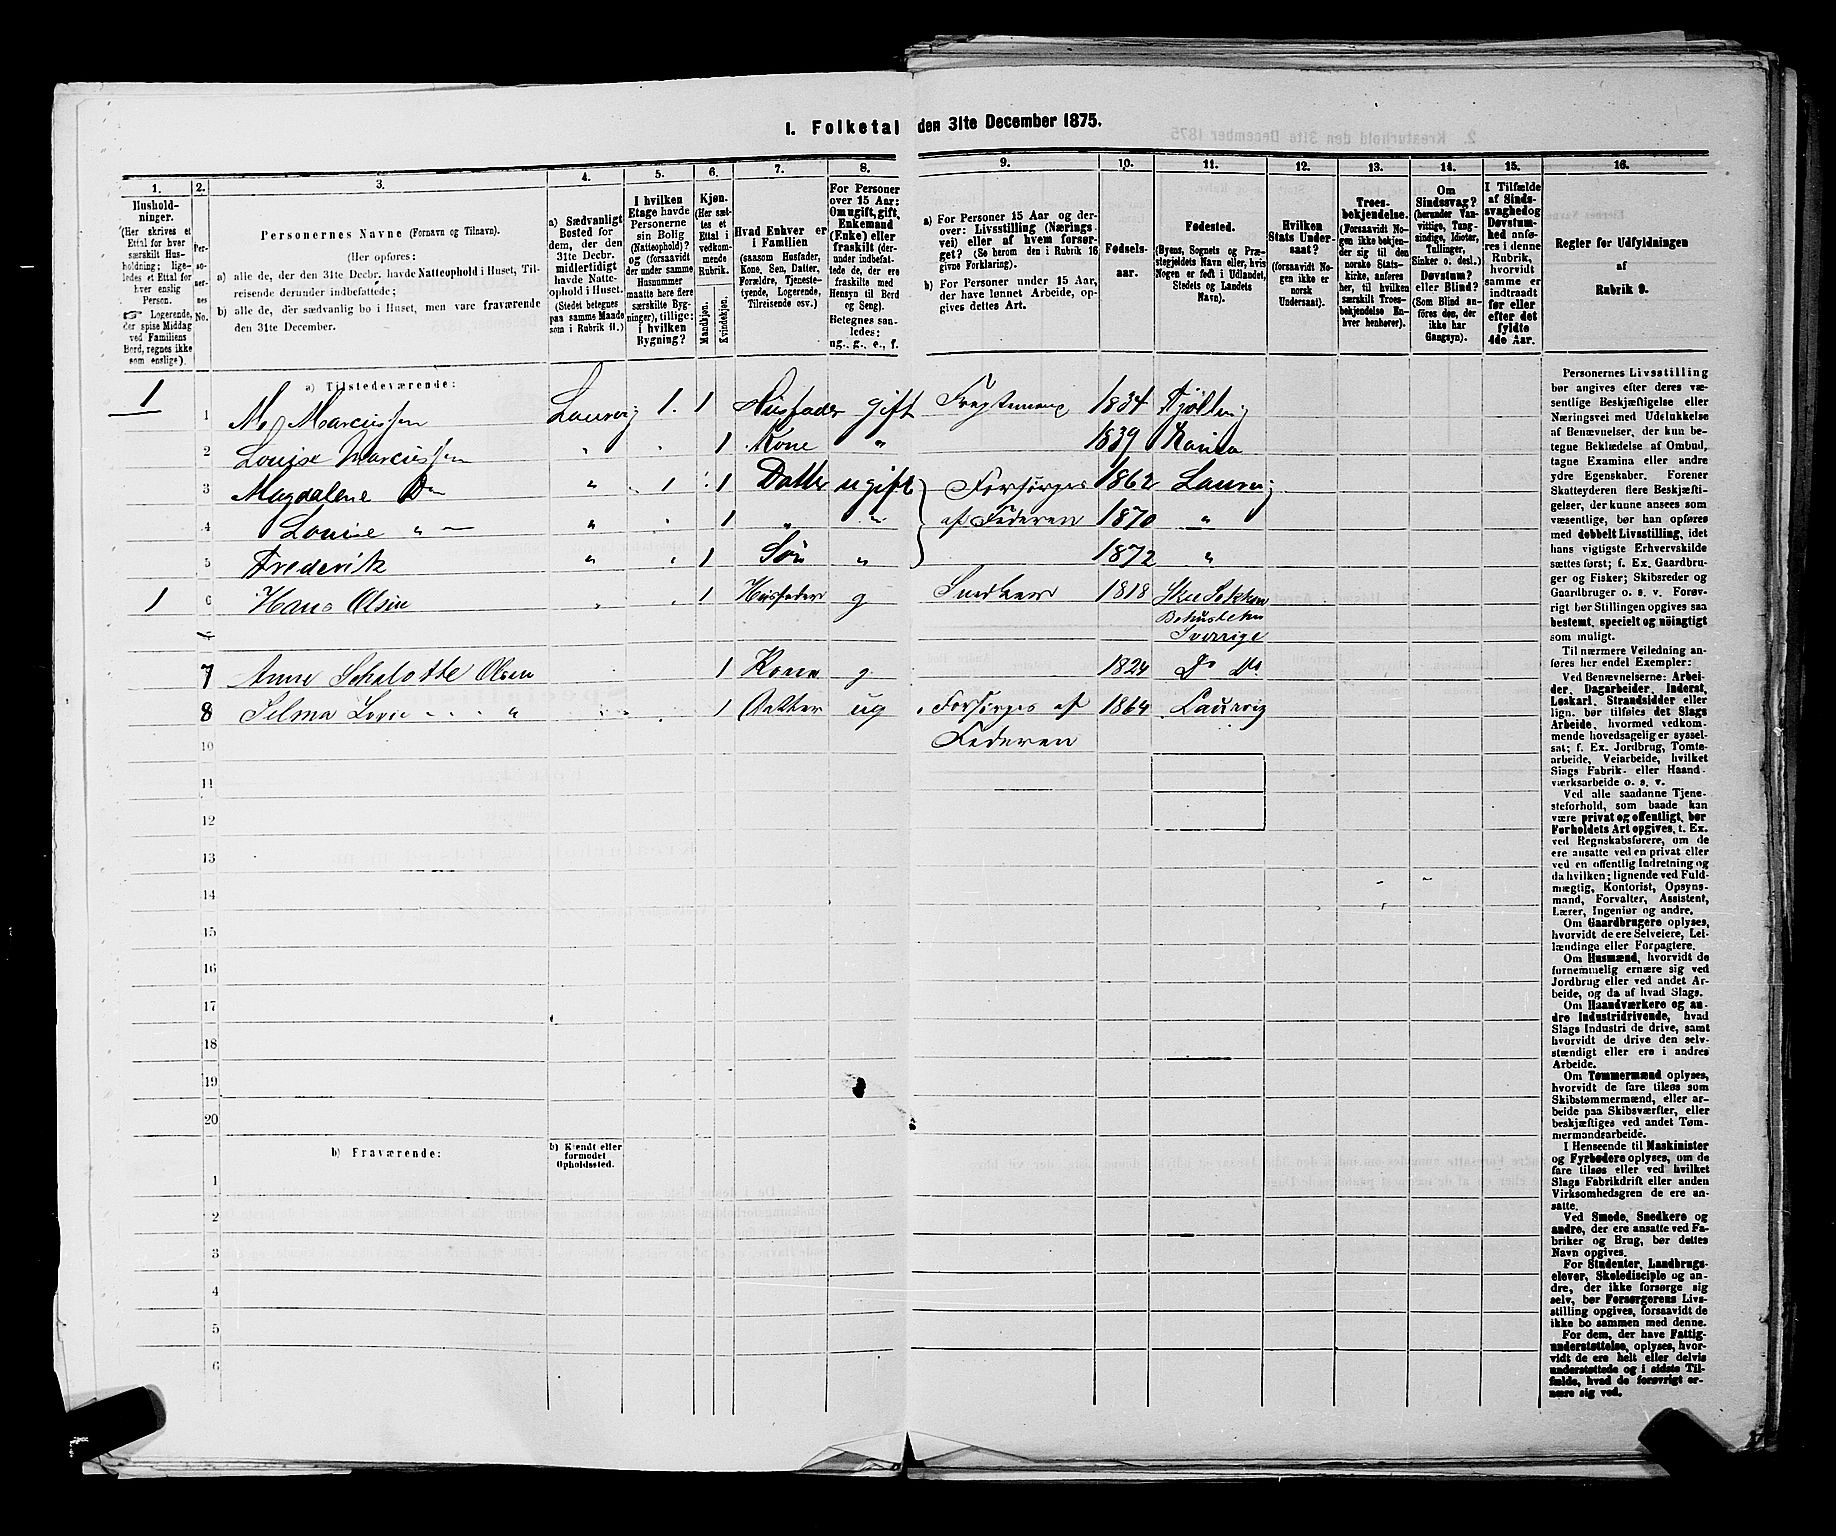 I. Folketal den 31te December 1875.
1. 2. 3. 4. 5. 6. 7. 8. 9. 10. 11. 12. 13. 14. 15. 16.
Husholdninger.
(Her skrives et
Ettal for hver
særskilt Husholdning;
ligeledes et Ettal for
hver enslig
Person.
Logerende,
der spise Middag
ved Familiens
Bord, regnes ikke
som enslige).
Personernes No.
Personernes Navne (Fornavn og Tilnavn).
(Her opføres:
a) alle de, der den 31te Decbr. havde Natteophold i Huset, Tilreisende derunder indbefattede;
b) alle de, der sædvanlig bo i Huset, men vare fraværende
den 31te December.
a) Sædvanligt
Bosted for
dem, der den
31te Decbr.
midlertidigt
havde Natteophold i Huset.
(Stedet betegnes
paa samme Maade
som i Rubrik 11.)
I hvilken
Etage havde
Personerne
sin Bolig
(Natteophold)?
og (forsaavidt
der under samme
Husnummer
maatte høre flere
særskilte Bygninger), tillige:
i hvilken
Bygning?
Kjøn.
(Her sættes et
Ettal i
vedkommende
Rubrik.
Mandkjøn.
Kvindekjøn.
Hvad Enhver er
i Familien
(saasom Husfader,
Kone, Søn, Datter,
Forældre, Tjenestetyende, Logerende,
Tilreisende osv.)
For Personer
over 15 Aar:
Om ugift, gift,
Enkemand
(Enke) eller
fraskilt (derunder indbefattede de, der ere
fraskilte med
Hensyn til Bord
og Seng).
Betegnes saaledes:
ug., g., e., f.
a) For Personer 15 Aar og derover: Livsstilling (Næringsvei) eller af hvem forsørget? (Se herom den i Rubrik 16
givne Forklaring).
b) For Personer under 15 Aar,
der have lønnet Arbeide, opgives dettes Art.
Fødselsaar.
Fødested.
(Byens, Sognets og Præstegjeldets Navn eller, hvis
Nogen er født i Udlandet,
Stedets og Landets
Navn).
Hvilken
Stats Undersaat?
(forsaavidt Nogen ikke er
norsk
Undersaat).
Troesbekjendelse.
(Forsaavidt Nogen ikke bekjender sig til den
norske Statskirke, anføres
her, til hvilken
særskilt Troesbekjendelse Enhver henhører).
Om
Sindssvag?
(herunder Vanvittige, Tungsindige, Idioter,
Tullinger,
Sinker o. desl.)
Døvstum?
eller Blind?
(Som Blind anføres den, der
ikke har
Gangsyn).
I Tilfælde
af Sindssvaghed og
Døvstumhed anføres i denne
Rubrik,
hvorvidt
samme er
indtraadt
før eller
efter det
fyldte
4de Aar.
Regler for Udfyldningen
af
Rubrik 9.
a) Tilstedeværende:
1 1 M. Marcussen Laurvig 1. 1 Husfader gift Fragtemand 1834 Tjølling
2 Louise Marcussen " " 1 Kone " 1839
3 Magdalene Do " 1 1 Datter ugift Forsørges 1862 Laurvig
4 Louise " " " 1 " " af Faderen 1870 "
5 Frederik " " 1 Søn " 1872 "
1 6 Hans Olsen " " 1 Husfader g 1818
Sverrige
7 Anne Schalotte Olsen 1 Kone g. 1824 Do Do
8 Selma " 1 Datter ug Forsørges af 1864 Laurvig
10 Faderen
11
12
13
14
15
16
17
18
19
20
b) Fraværende:
b) Kjendt eller
formodet
Opholdssted.
1
2
3
4
5
6
Personernes Livsstilling
bør angives efter deres væsentlige Beskjæftigelse eller
Næringsvei med Udelukkelse
af Benævnelser, der kun betegne Beklædelse af Ombud,
tagne Examina eller andre
ydre Egenskaber. Forener
Skatteyderen flere Beskjæftigelser, der kunne ansees som
væsentlige, bør han opføres
med dobbelt Livsstilling, idet
hans vigtigste Erhvervskilde
sættes først; f. Ex. Gaardbruger og Fisker; Skibsreder og
Gaardbruger o. s. v. Forøvrigt bør Stillingen opgives saa
bestemt, specielt og nöiagtigt
som muligt.
Til nærmere Veiledning anføres her endel Exempler:
Ved Benævnelserne: Arbeider, Dagarbeider, Inderst,
Løskarl, Strandsidder eller
lign. bør tilføies det Slags
Arbeide, hvormed vedkommende hovedsagelig er sysselsat; f. Ex. Jordbrug, Tomtearbeide, Veiarbeide, hvilket
Slags Fabrik- eller Haandværksarbeide o. s. v.
Ved alle saadanne Tjenesteforhold, som baade kan
være privat og offentligt, bør
Forholdets Art opgives, t. Ex.
ved Regnskabsførere, om de
ere ansatte ved en privat eller
ved en offentlig Indretning og
da hvilken; lignende ved Fuldmægtig, Kontorist, Opsynsmand, Forvalter, Assistent,
Lærer, Ingeniør og andre.
Om Gaardbrugere oplyses,
hvorvidt de ere Selveiere, Leilændinge eller Forpagtere.
Om Husmænd, hvorvidt de
fornemmelig ernære sig ved
Jordbrug eller ved andet Arbeide, og da af hvad Slags.
Om Haandværkere og andre Industridrivende, hvad
Slags Industri de drive, samt
hvorvidt de drive den selvstændigt eller ere i andres
Arbeide.
Om Tømmermænd oplyses,
hvorvidt de fare tilsøs som
Skibstømmermænd, eller arbeide paa Skibsværfter, eller
beskjæftiges ved andet Tømmermandsarbeide.
I Henseende til Maskinister
og Fyrbødere oplyses, om de
fare tilsøs eller ved hvilket
Slags Fabrikdrift eller anden
Virksomhedsgren de ere ansatte.
Ved Smede, Snedkere og
andre, der ere ansatte ved Fabriker og Brug, bør dettes
Navn opgives.
For Studenter, Landbrugselever, Skoledisciple og andre, der ikke forsørge sig
selv, bør Forsørgerens Livsstilling opgives, forsaavidt de
ikke bo sammen med denne.
For dem, der have Fattigunderstøttelse, oplyses, hvorvidt de ere helt eller delvis
understøttede og i sidste Tilfælde, hvad de forøvrigt ernære sig ved.